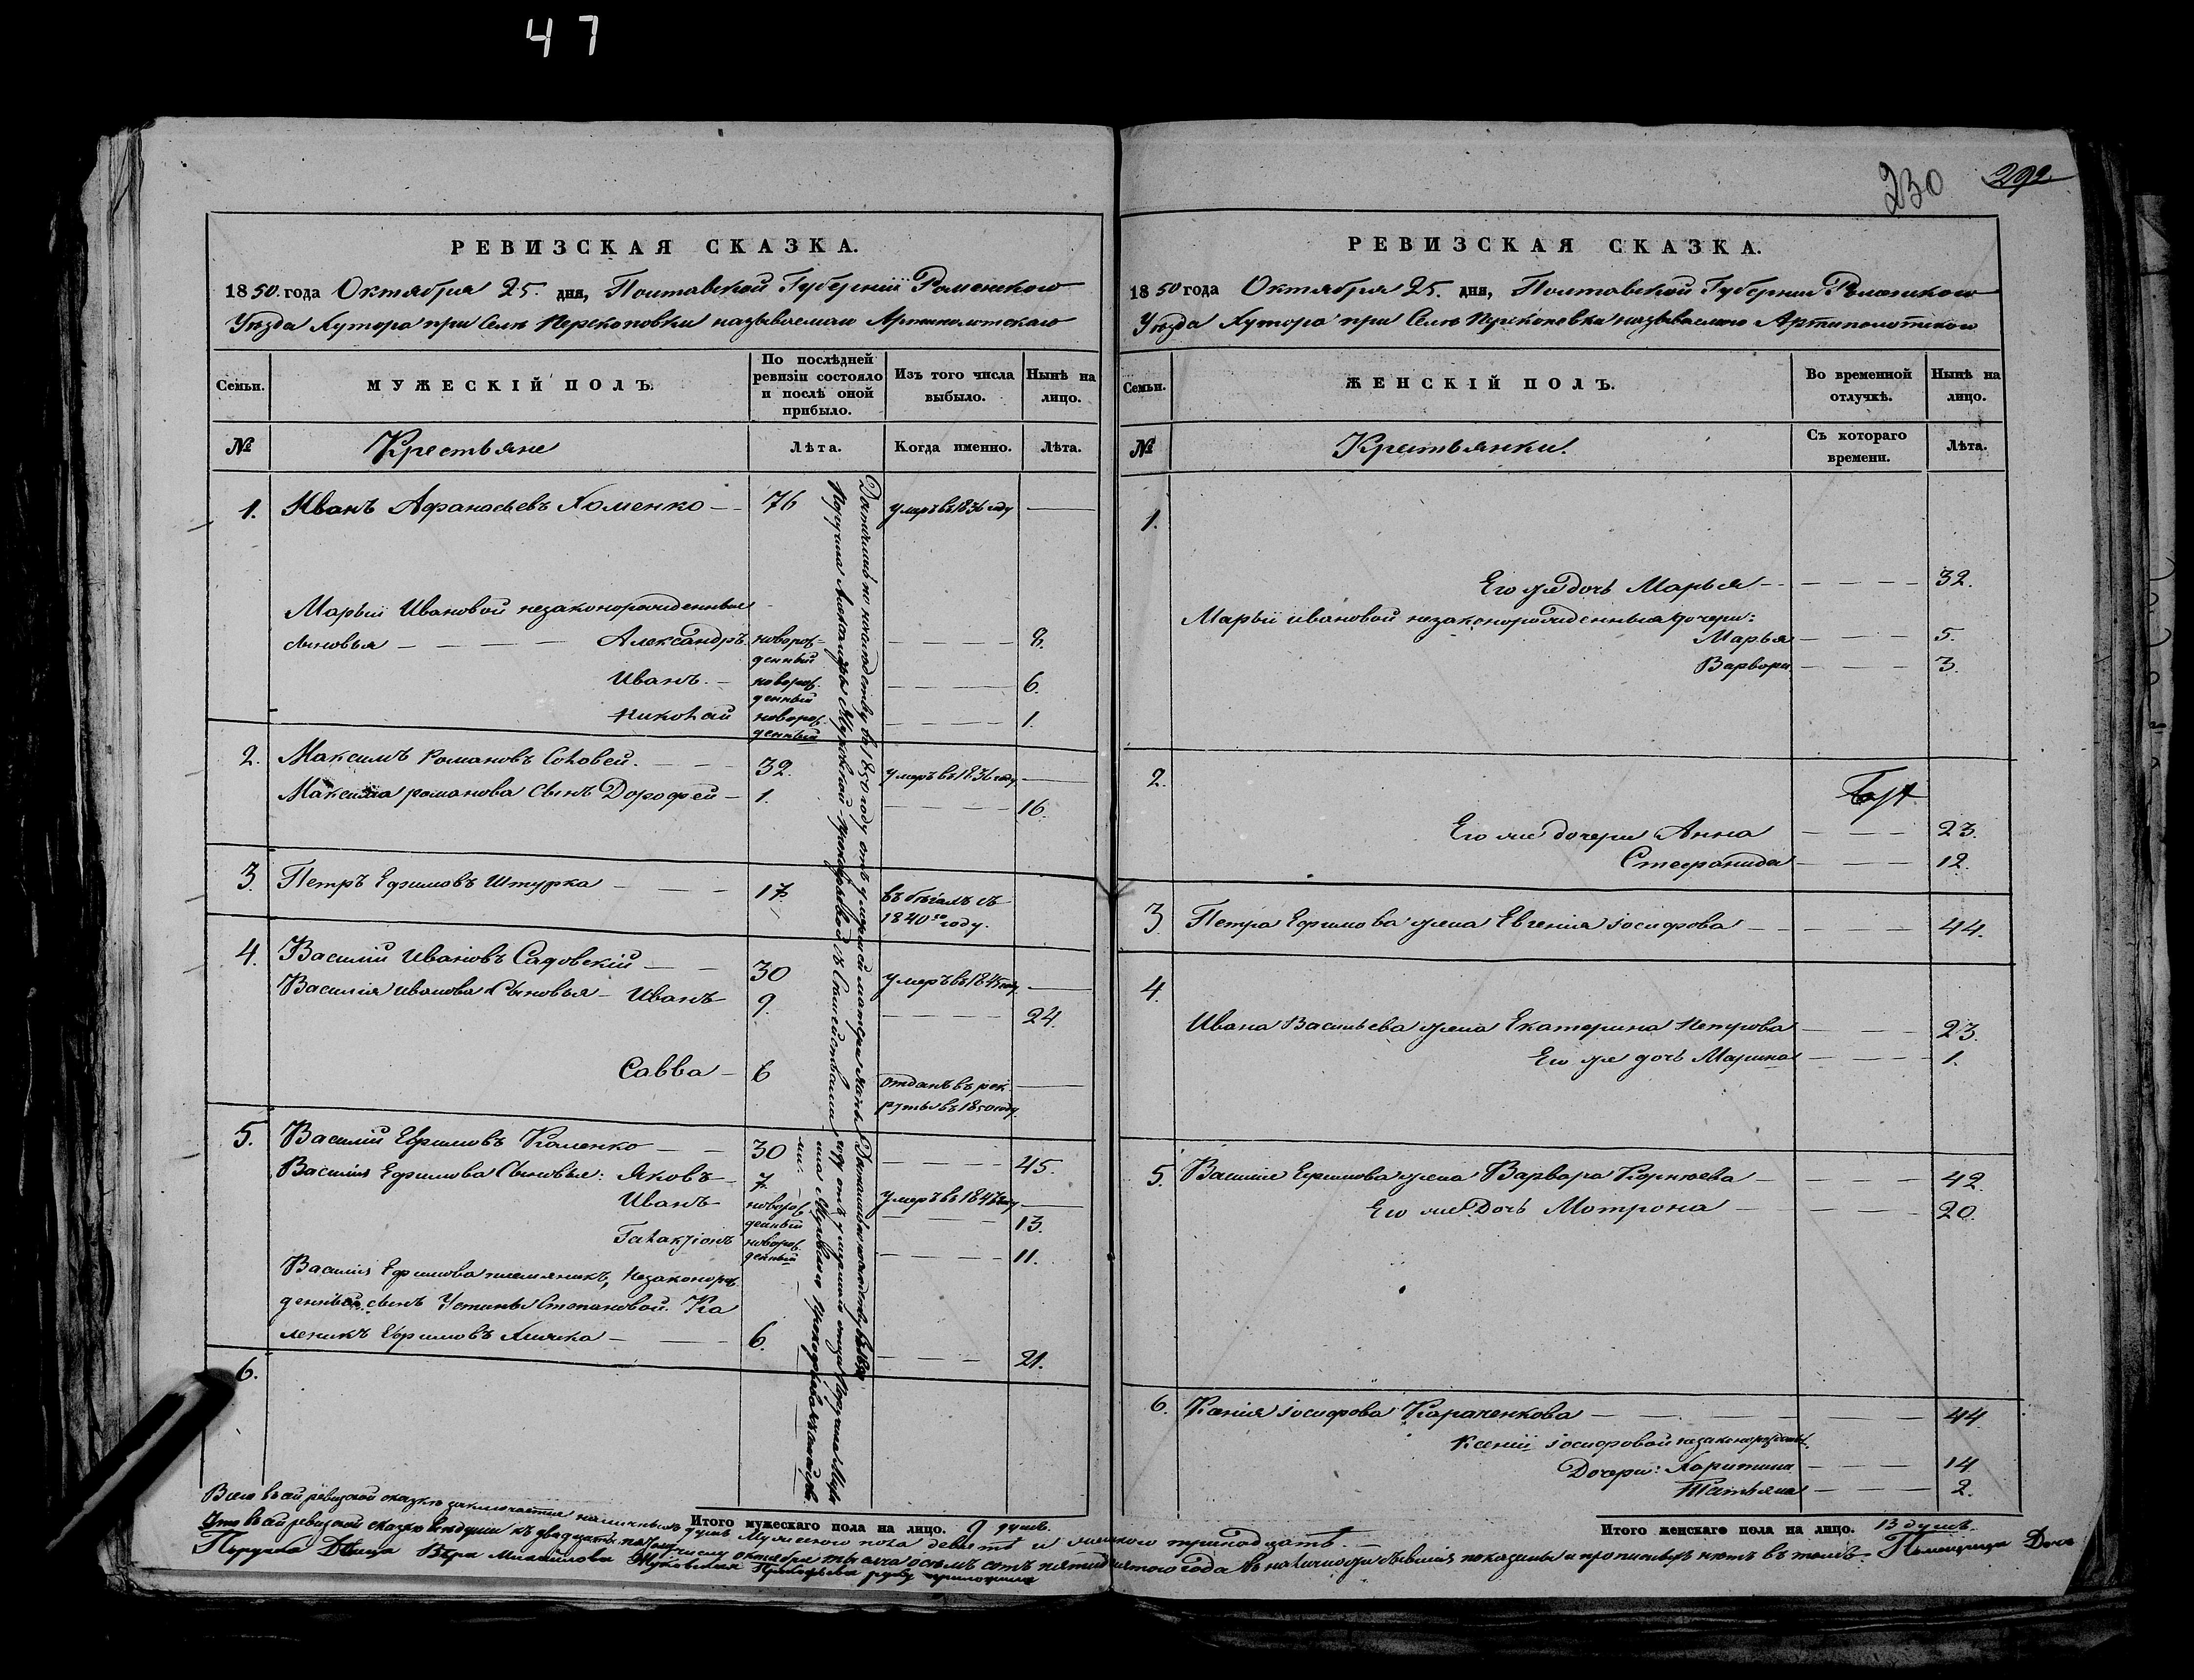 47
230 292
РЕВИЗСКАЯ СКАЗКА.
1850. года Октября 25. дня, Полтавской Губернiи Роменского
Уѣзда Хутора при Селѣ Перекоповки называемаго Артиполотскаго
Семьи.
МУЖЕСКIЙ ПОЛЪ.
По послѣдней ревизiи состояло и послѣ оной прибыло.
Изъ того числа выбыло.
Нынѣ на лицо.
№ Крестьяне Лѣта. Когда именно. Лѣта.
1. Иванъ Афанасьевъ Хоменко — 76 умеръ въ 1836 году —
Марьи Ивановой незаконорожденные
сыновья — Александръ новорож-денный — 8.
Иванъ. — новорож-денный — 6.
Николай новорож-денный — 1.
2. Максимъ Романовъ Соловей. — 32. умеръ въ 1836 году —
Максима романова сынъ Дорофей — 1. — 16.
3. Петръ Ефимовъ Штурка — 17. въ бѣгахъ съ 1840го году.
4. Василiй Ивановъ Садовскiй — 30 умеръ въ 1845 году —
Василiя иванова сыновья — Иванъ 9. — 24.
Савва — 6 отданъ въ рекруты въ 1850 году. —
5. Василiй Ефимовъ Каленко — 30 — 45.
Василiя Ефимова сыновья: Яковъ — 7. умеръ въ 1847 году —
Иванъ новорож-денный — 13.
Галактiонъ новорож-денный — 11.
Василiя Ефимова племяникъ, незаконорож-
денный сынъ Устины Степановой. Ка
леникъ Ефимовъ Кличка — 6. — 21.
6.
Достались по наслѣдству въ 1850 году отъ умершей матери
Поручика Александры Жуковской
Итого мужескаго пола на лицо. 9 душъ.
РЕВИЗСКАЯ СКАЗКА.
1850 года Октября 25. дня, Полтавской Губернiи Роменского
Уѣзда Хутора при Селѣ Перекоповки называемаго Артиполотского
Семьи.
ЖЕНСКIЙ ПОЛЪ.
Во временной отлучкѣ.
Нынѣ на лицо.
№ Крестьянки. Съ котораго времени. Лѣта.
1.
Его же дочь Марья — 32.
Марьи ивановой незаконорожденныя дочери:
Марья — 5.
Варвара — 3.
2.
Его же дочери Анна — 23.
Стефанида — 12.
3 Петра Ефимова жена Евгенiя Iосифова — 44.
4.
Ивана Васильева жена Екатерина Петрова — 23.
Его же дочь Марина — 1.
5. Василiя Ефимова жена Варвара Корнѣева — 42.
Его же Дочь Мотрона — 20.
6. Ксенiя Iосифова Караченкова — 44
Ксенiи Iосифовой незаконорожден.
Дочери: Харитина — 14
Татьяна — 2.
Итого женскаго пола на лицо. 13 душъ.
Всего въ сей ревизской сказкѣ заключается наличныхъ душъ Мужеского пола девять и женского тринадцать. —
Что въ сей ревизской сказкѣ всѣ души къ двадцать пятому числу октября тысяча осьмъ сотъ пятидесятого года въ наличности бывшiя показаны и прописныхъ нѣтъ въ томъ Помещица Дочь
Поручика Дѣвица Вѣра Михайлова Жуковская руку приложила